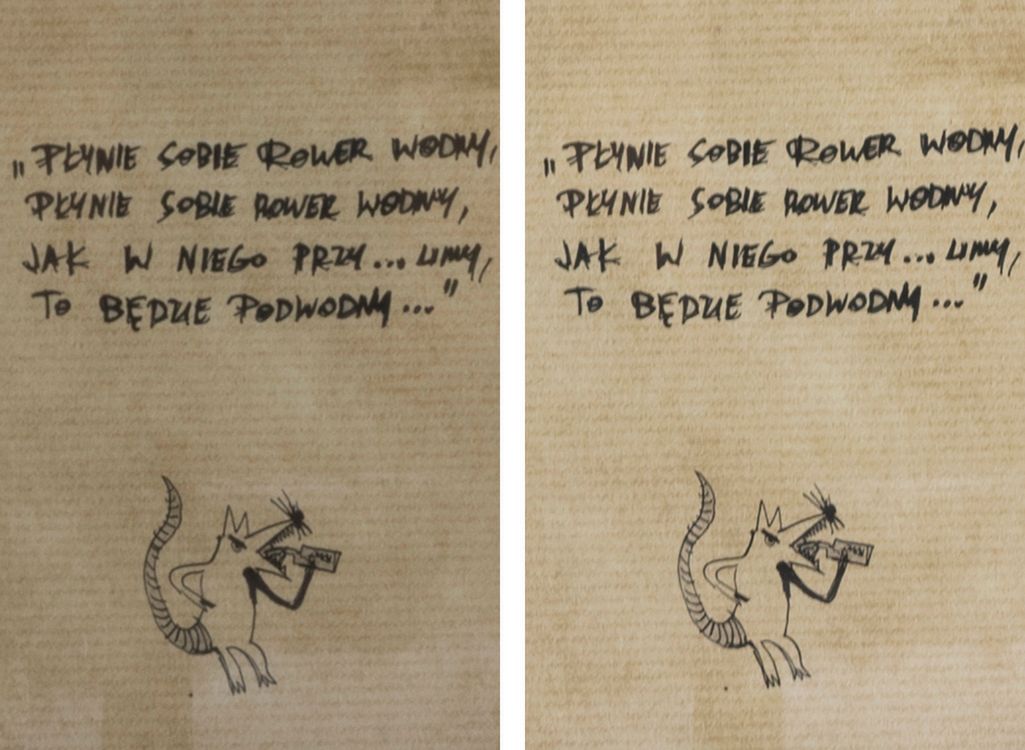 „PŁYNIE SOBIE ROWER WODNY,
PŁYNIE SOBIE ROWER WODNY,
JAK W NIEGO PRZY...LIMY,
TO BĘDZIE PODWODNY..."
„PŁYNIE SOBIE ROWER WODNY,
PŁYNIE SOBIE ROWER WODNY,
JAK W NIEGO PRZY...LIMY,
TO BĘDZIE PODWODNY..."